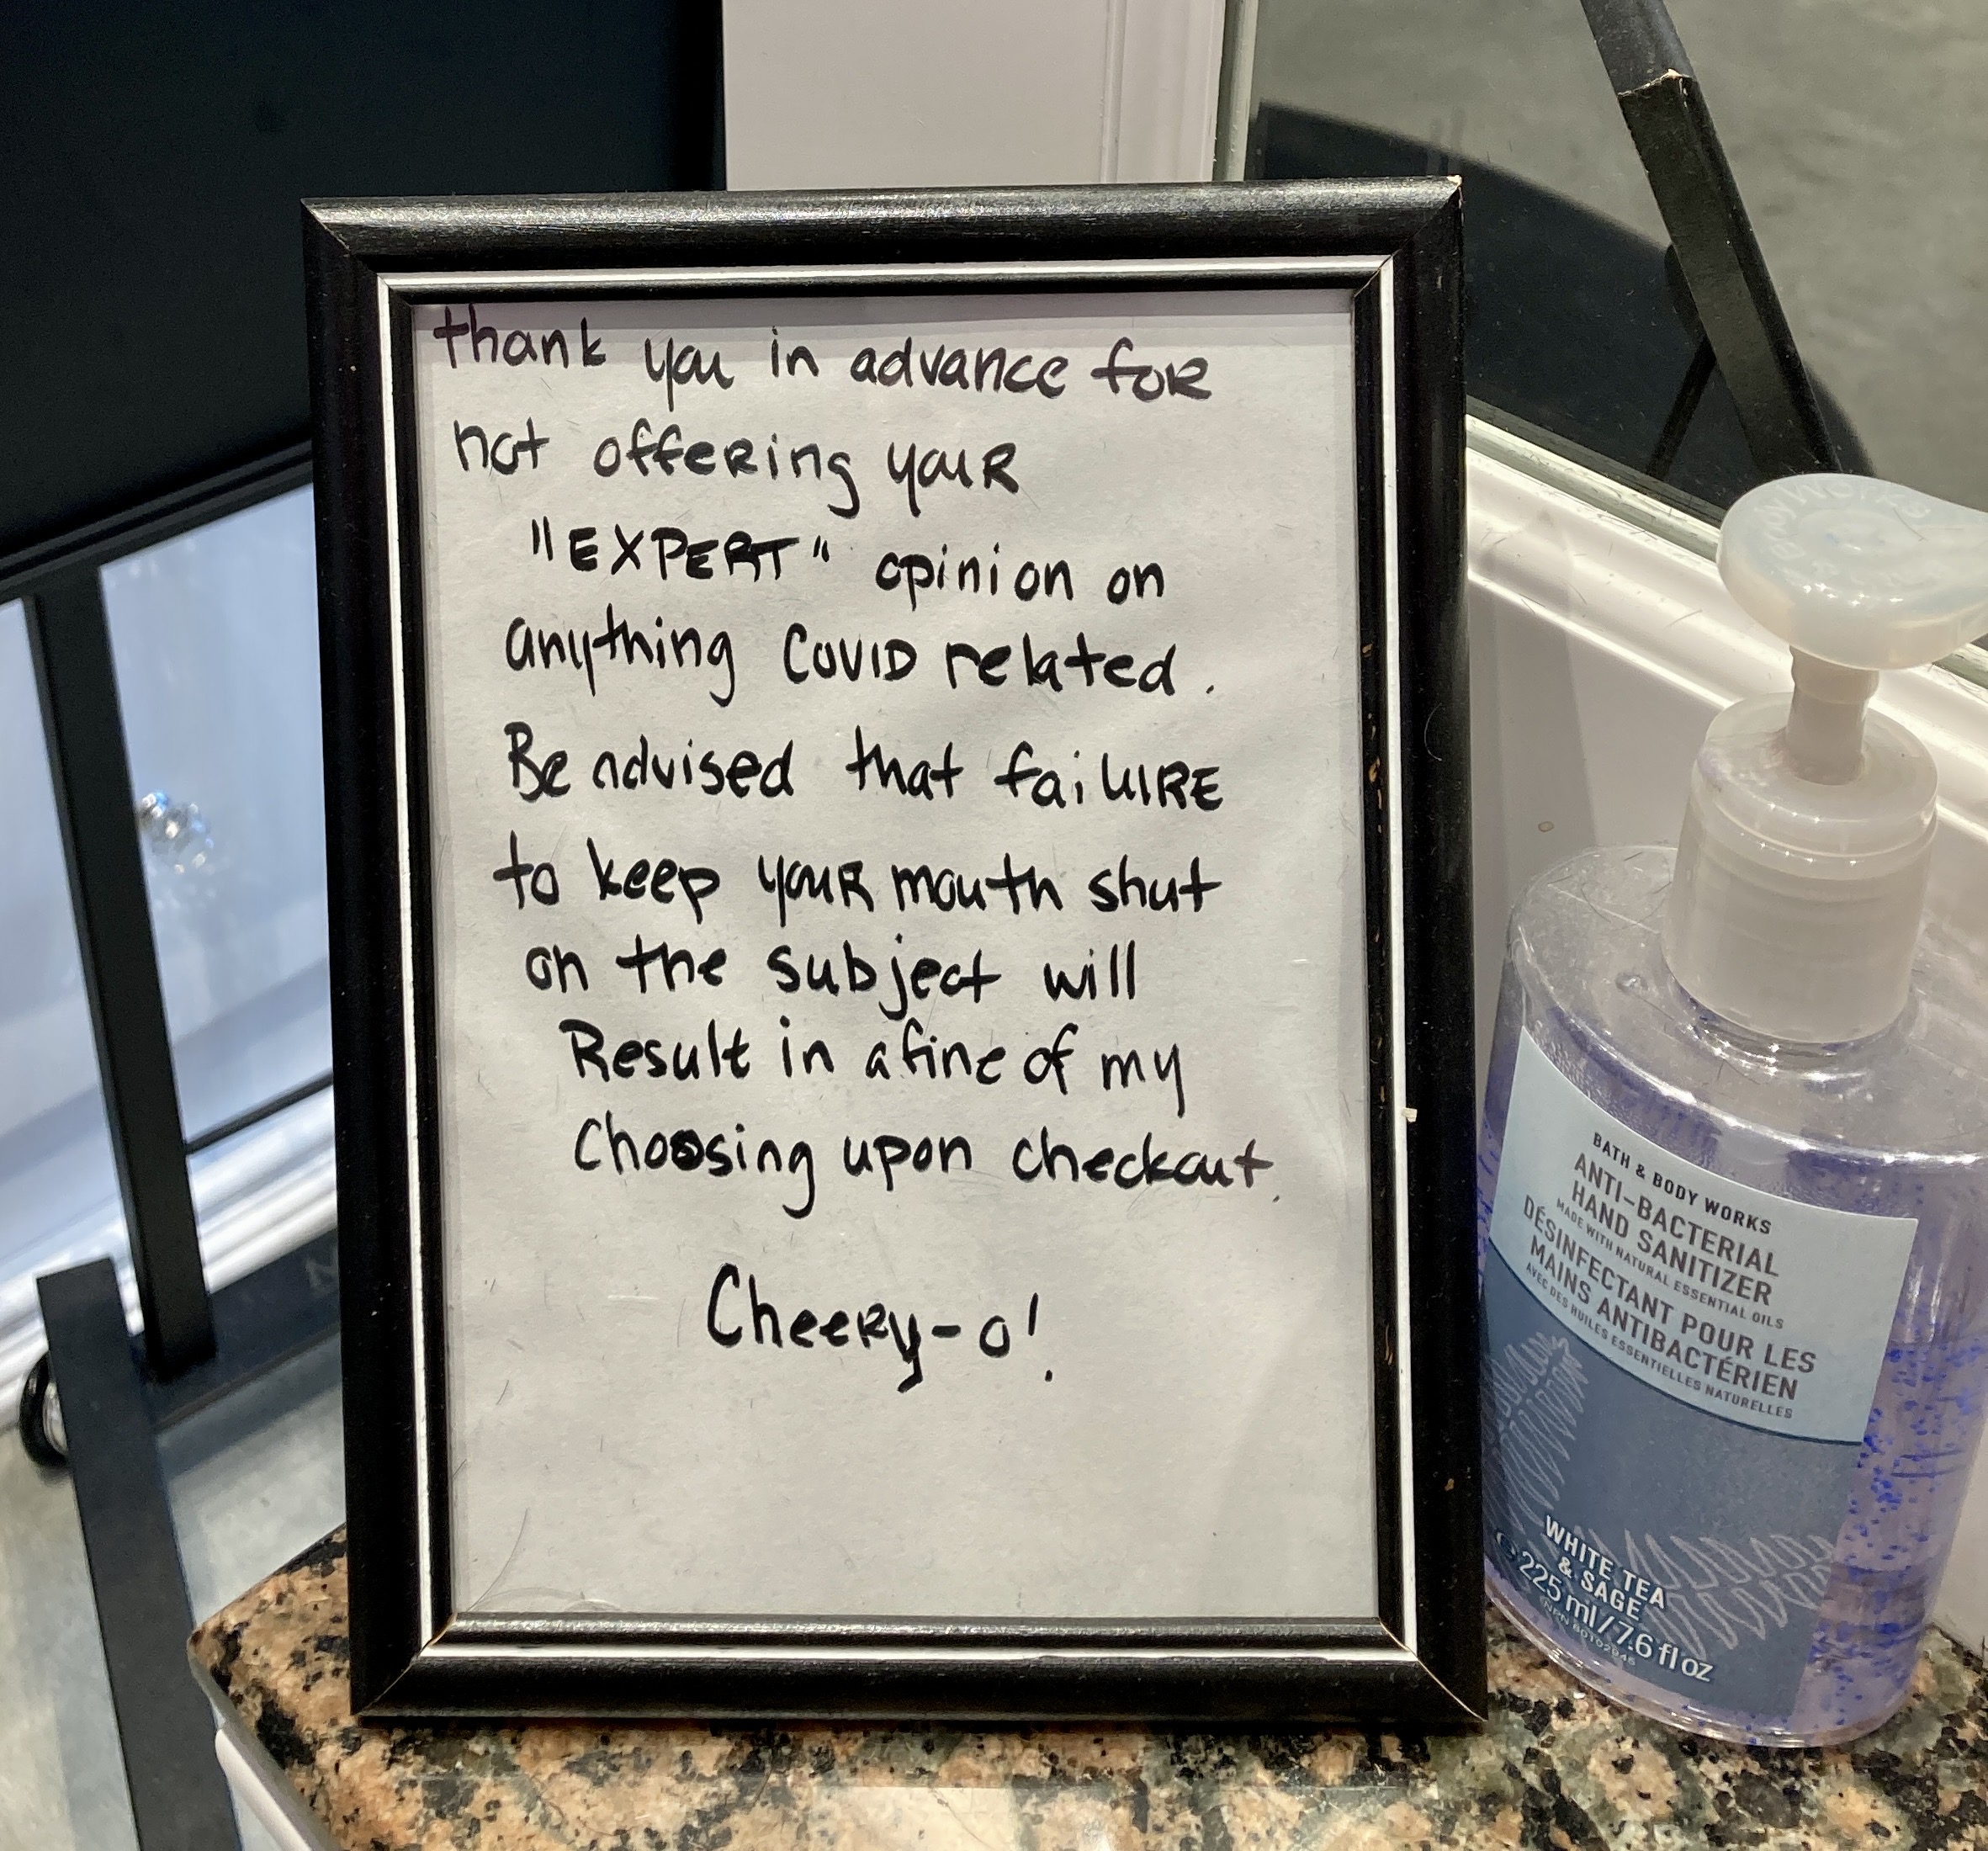 thank you in advance for
not offering your
"EXPERT" opinion on
anything COVID related.
Be advised that failure
to keep your mouth shut
on the subject will
Result in a fine of my
Choosing upon checkout.
Cheery-o!
BATH & BODY WORKS
ANTI-BACTERIAL
HAND SANITIZER
MADE WITH NATURAL ESSENTIAL OILS
DÉSINFECTANT POUR LES
MAINS ANTIBACTÉRIEN
AVEC DES HUILES ESSENTIELLES NATURELLES
WHITE TEA
& SAGE
225 ml/7.6 fl oz